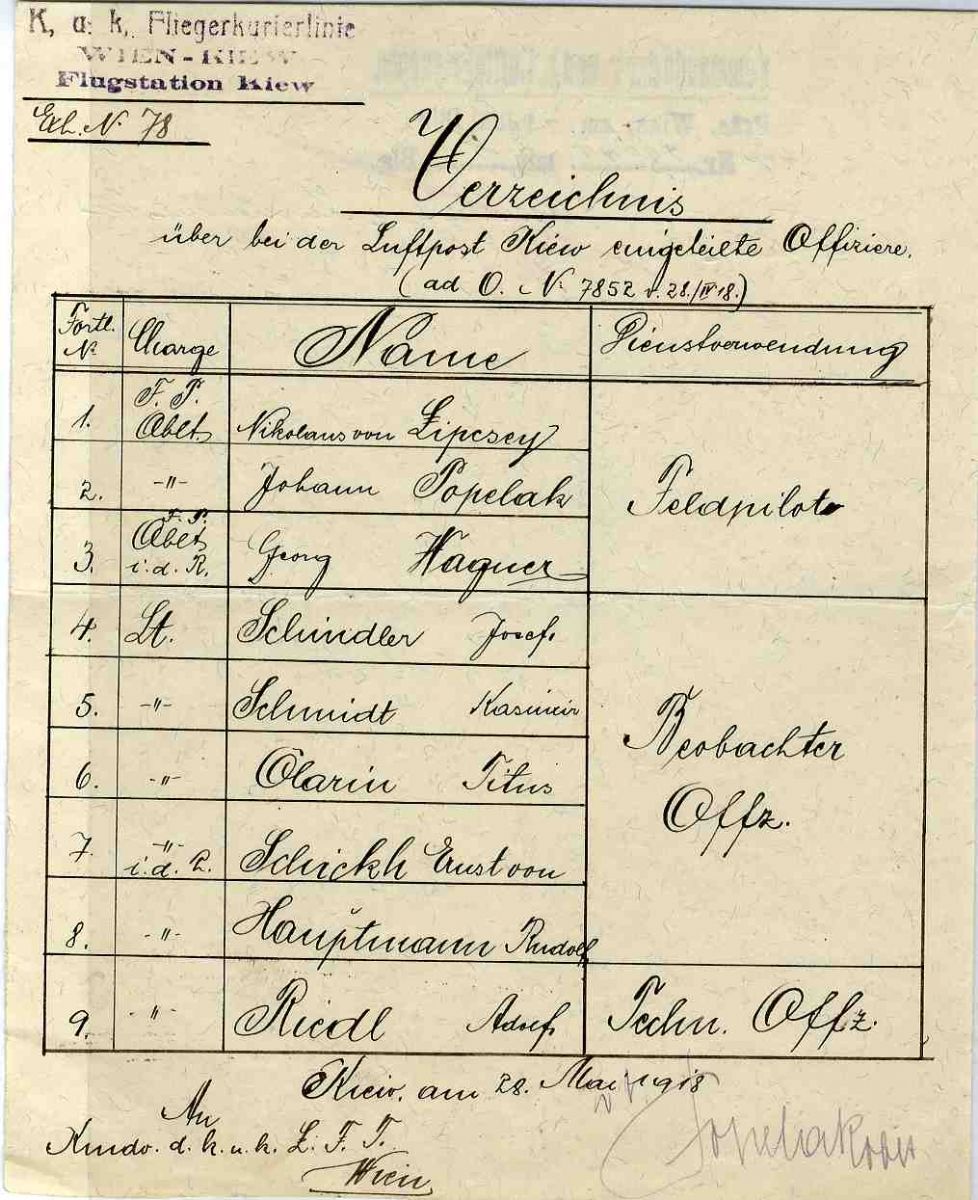 K. u. k. Fliegerkurierlinie
WIEN - KIEW
Flugstation Kiew
Exh. Nº 78
Verzeichnis
über bei der Luftpost Kiew eingeteilte Offiziere.
(ad O. Nº 7852 v. 28./IV 18.)
Fortl. Nº Charge Name Dienstverwendung
1. F. P. Oblt. Nikolaus von Lipcsey
2. -"- Johann Popelak Feldpilot
3. F. P. Oblt. i. d. R. Georg Wagner
4. Lt. Schindler Josef
5. -"- Schmidt Kasimir
6. -"- Olariu Titus Beobachter
Offz.
7. -"- i. d. R. Schickh Ernst von
8. -"- Hauptmann Rudolf
9. -"- Riedl Adolf Techn. Offz.
Kiew, am 28. Mai 1918
An
Kmdo. d. k. u. k. L. F. T.
Wien
Popelak Oblt